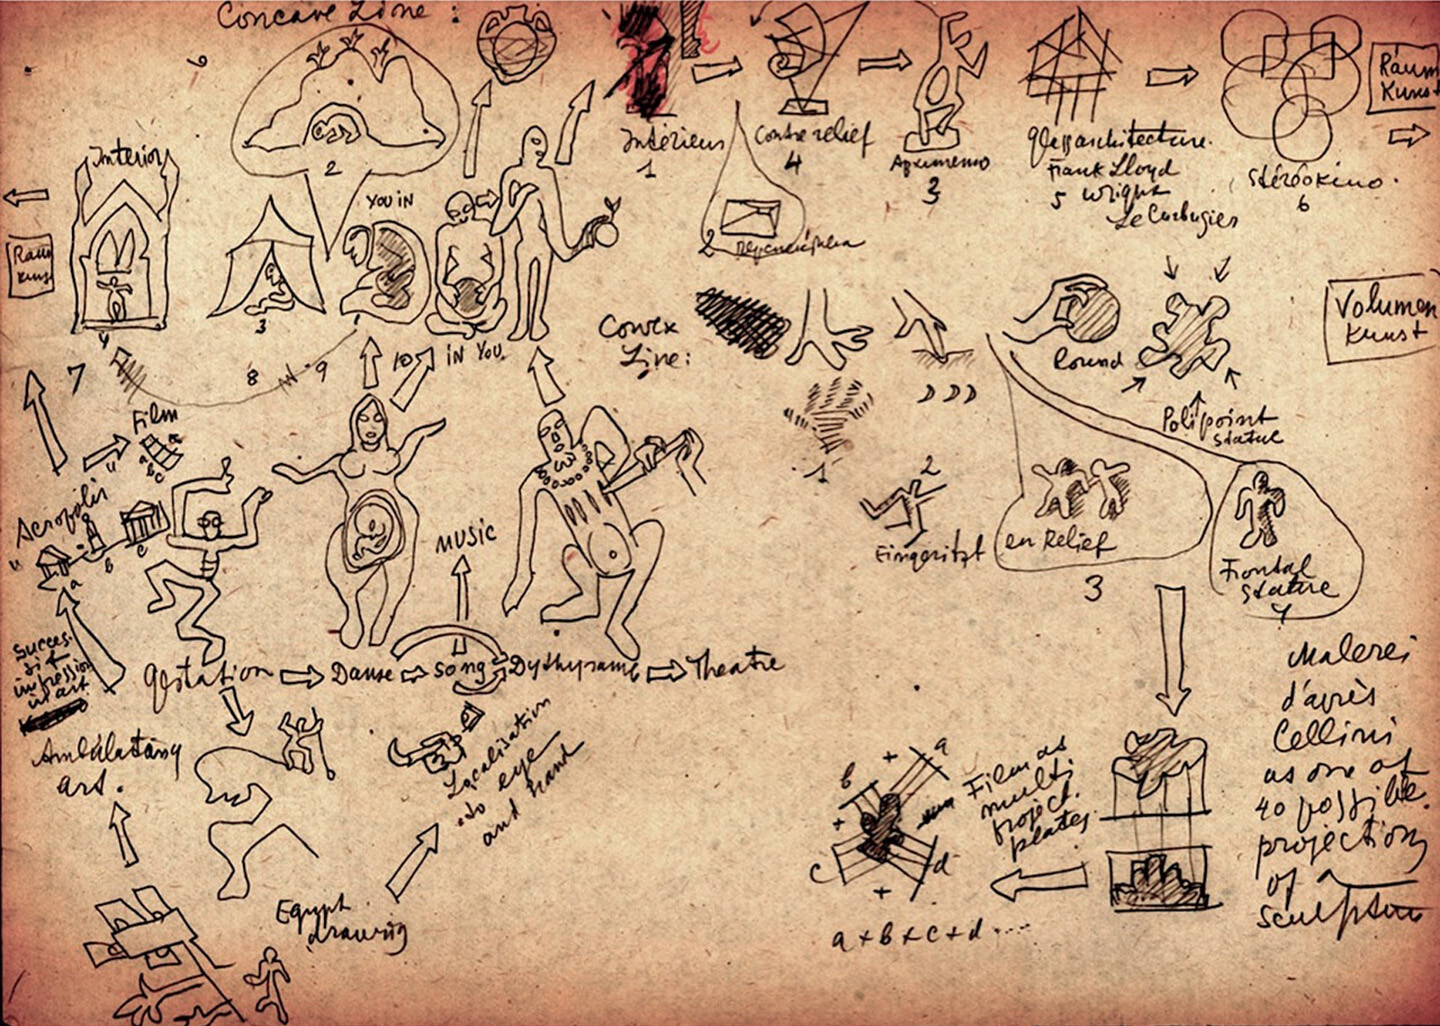 Concave Line :
6
2
Interior
Raum
Kunst
4
3
YOU IN
1
IN YOU
7
8
9
10
Intérieur
1
Contre relief
4
2
3
Glassarchitecture.
Frank Lloyd
5 Wright
Le Corbugier
Stéréokino.
6
Raum
Kunst
Convex
Line:
1
2
Eingeritzt
Round
Polipoint
statue
Volumen
Kunst
en Relief
3
Frontal
Statue
4
Film
a
b
c
Acropolis
a
b
c
Succes-
sif
impression
in art
MUSIC
Gestation
Danse
song
Dythyramb
Theatre
Ambulatory
art.
Localisation
to eye
and hand
Egypt
drawing
a
b
c
d
+
+
+
a + b + c + d ....
Film as
multi
project.
plates.
Malerei
d'après
Cellini
as one of
40 possible
projections
of a
sculpture